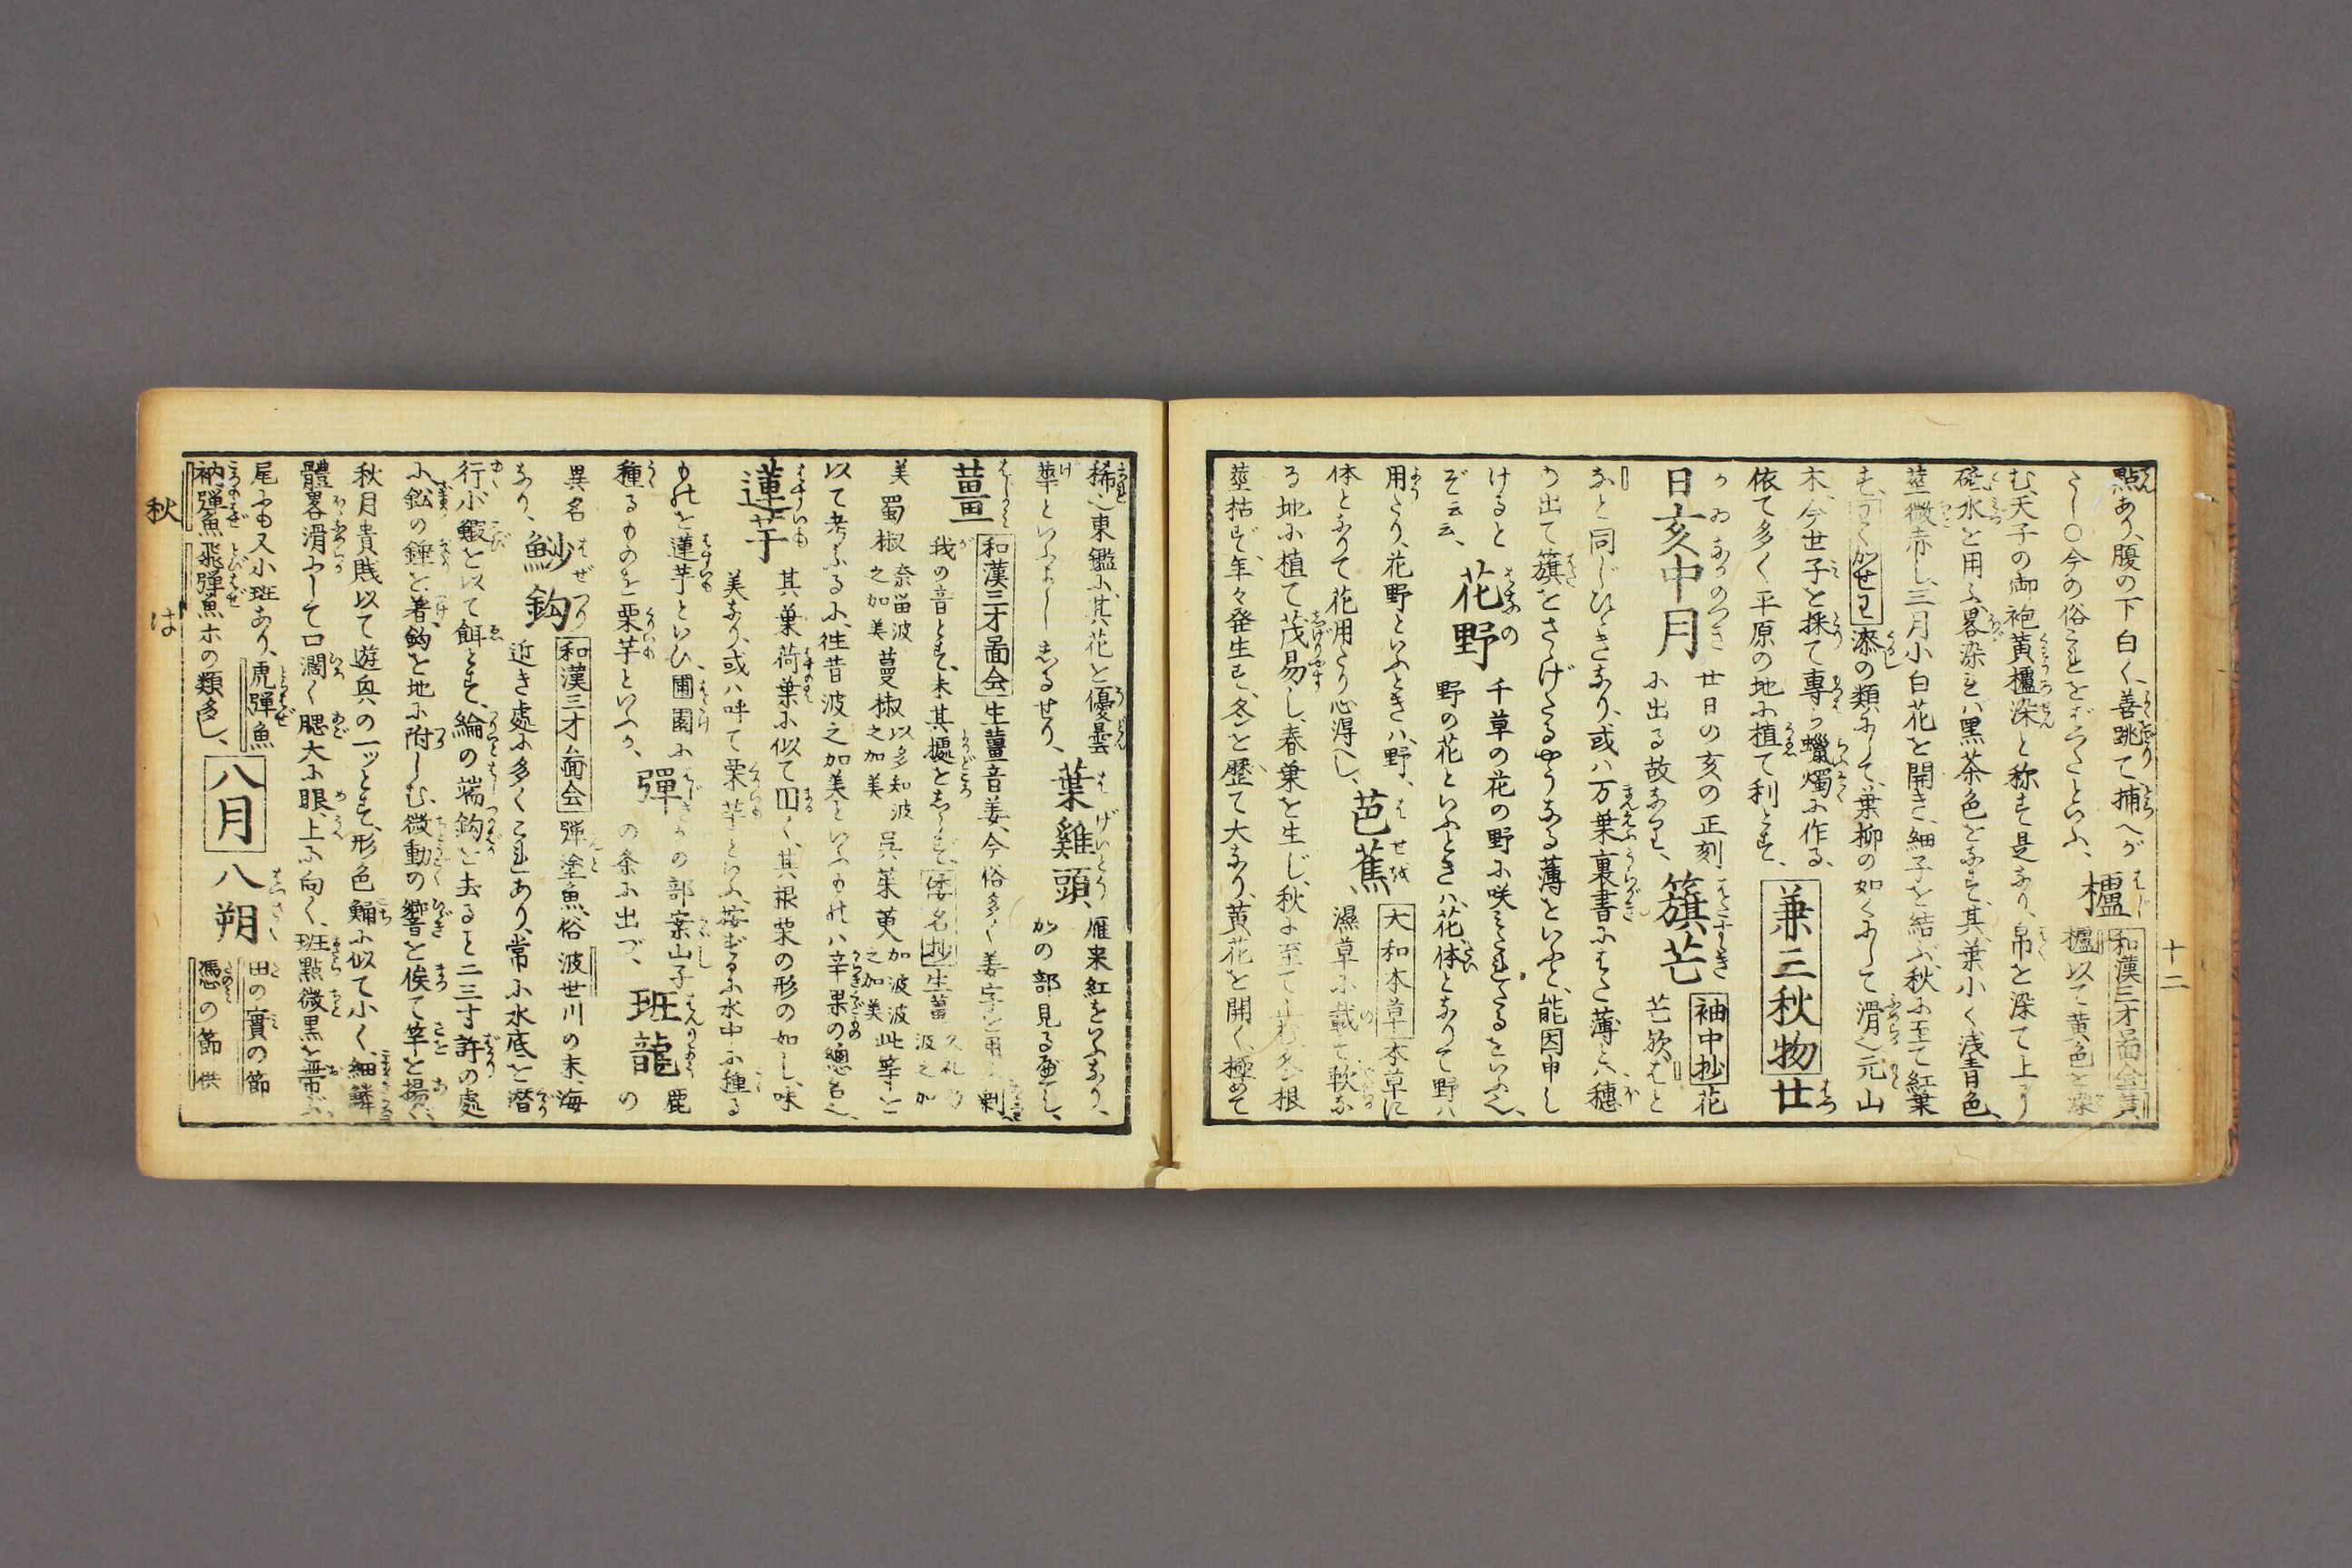 點あり、腹の下白く、善跳て捕へが
たし〇今の俗これをばつたといふ、櫨 和漢三才啚会 黄
櫨以て黄色を染
む、天子の御袍黄櫨染と称す是なり、帛を染て上より
砥水を用ふ、畧染れバ黒茶色となす、其葉小く浅青色、
莖微赤し、三月小白花を開き、細子を結ぶ、秋に至て紅葉
す、漆の類にして、葉柳の如くにして滑也、元山
木、今世子を採て専ら蠟燭に作る、
依て多く平原の地に植て利とす、兼三秋物 廿
日亥中月 廿日の亥の正刻
に出る故なり、籏芒 袖中抄 花
芒欤はた
なと同じひゞきなり、或ハ万葉裏書にはた薄とハ穂
の出て籏をさゝげたるやうなる薄といふと、能因申し
けると
ぞ云云、花野 千草の花の野に咲みだれたるをいふ也、
野の花といふときハ、花体となりて野ハ
用なり、花野といふときハ、野、
体となりて花用なり心得へし、芭蕉 大和本草 本草に
濕草に載て軟な
る地に植て茂易し、春葉を生じ、秋に至て止む、冬根
莖枯ず、年々発生す、冬を歴て大なり、黄花を開く、極めて
稀也、東鑑に、其花を優曇
華といふよししるせり、葉雞頭、雁来紅をいふなり、
かの部見る可し、
薑 和漢三才啚会 生薑音姜、今俗多く姜字を用
我の音とす、未其據をしらず、倭名抄 生薑 久礼乃
波之加
美 蜀椒 奈留波
之加美 蔓椒 以多知波
之加美 呉茱萸 加波波
之加美 此等を
以て考ふるに、徃昔波之加美といふものハ辛果の總名也、
蓮芋 其葉荷葉に似て円く、其根栗の形の如し、味
美なり、或ハ呼て栗芋といふ、按ずるに水中に種る
ものを蓮芋といひ、圃園に
種るものを栗芋といふか、彈 はじきの部案山子
の条に出づ、班龍 鹿
の
異名 魦釣 和漢三才啚会 彈塗魚、俗波世川の末、海
近き處に多くこれあり、常に水底を潜
行ふ、鰕を以て餌とす、綸の端鈎を去ると二三寸許の處
に鉛の錘を著、鈎を地に附しむ、微動の響を俟て竿を揚ぐ、
秋月貴賎以て遊興の一ッとす、形色鯒に似て小く、細鱗
體畧滑にして口濶く腮大に眼、上に向く、班點微黒を帯ぶ、
尾にも又小班あり、虎彈魚
衲彈魚飛彈魚ホの類多し、八月 八朔 田の實の節
憑の節 供
秋
は
十二